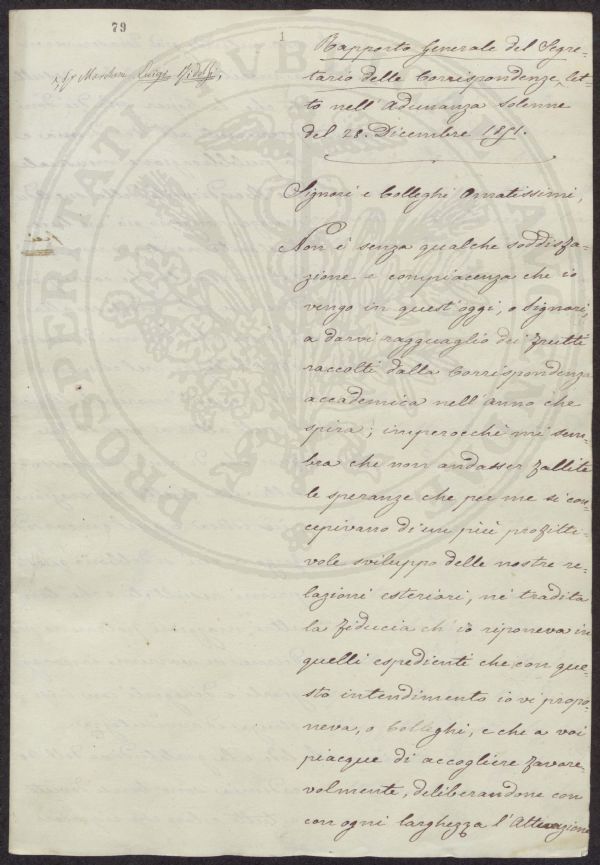 79
1
Marchese Luigi Ridolfi,
Rapporto Generale del Segre-
tario delle Corrispondenze let-
to nell'Adunanza Solenne
del 28. Dicembre 1851.
Signori e Colleghi Ornatissimi,
Non è senza qualche soddisfa-
zione e compiacenza che io
vengo in quest'oggi, o Signori,
a darvi ragguaglio dei frutti
raccolti dalla Corrispondenza
accademica nell'anno che
spira; imperocchè mi sem-
bra che non andasser fallite
le speranze che per me si con-
cepivano di un più profitte-
vole sviluppo delle nostre re-
lazioni esteriori, nè tradita
la fiducia ch'io riponeva in
quelli espedienti che con que-
sto intendimento io vi propo-
neva, o Colleghi, e che a voi
piacque di accogliere favore-
volmente, deliberandone con
con ogni larghezza l'Attuazione
PROSPERITATI PUBLICAE